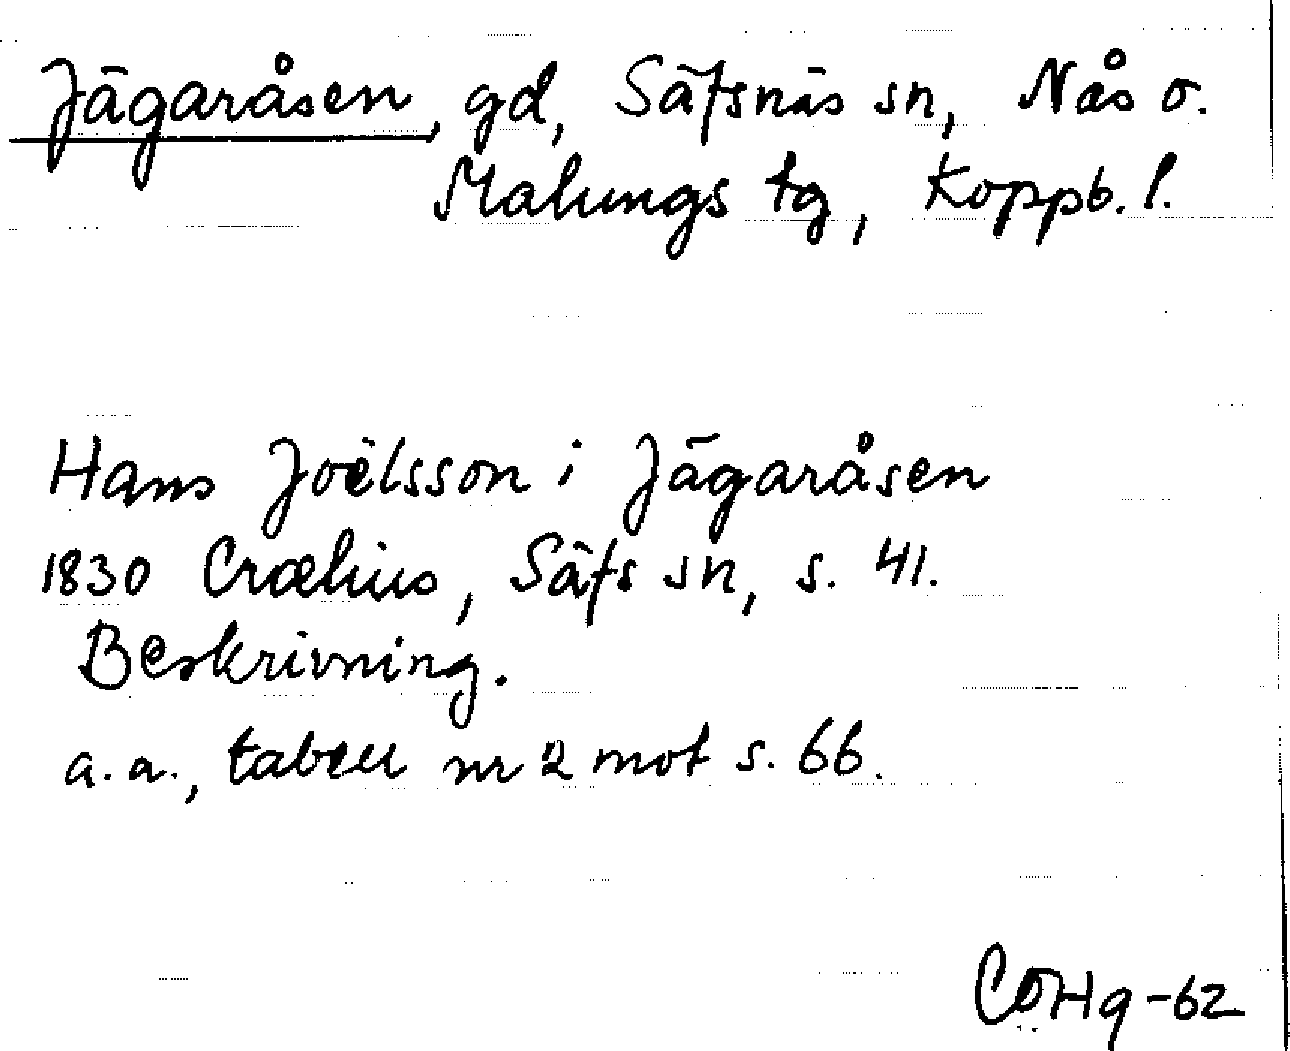 Jägaråsen, gd, Säfsnäs sn, Nås o.
Malungs tg, Koppb. l.
Hans Joëlsson i Jägaråsen
1830 Crælius, Säfs sn, s. 41.
Beskrivning.
a.a., tabell nr 2 mot s. 66.
CÖHg-62